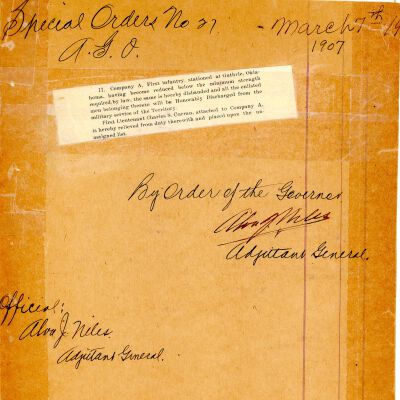 Special Orders No 21
March 7th 19
A.G.O.
1907
II. Company A, First infantry, stationed at Guthrie, Okla-
homa, having become reduced below the minimum strength
required by law, the same is hereby disbanded and all the enlisted
men belonging thereto will be Honorably Discharged from the
military service of the Territory.
First Lieutenant Charles S. Curran, attached to Company A,
is hereby relieved from duty therewith and placed upon the un-
assigned list.
By Order of the Governor
Alva J Niles
Adjutant General.
Official:
Alva J. Niles.
Adjutant General.